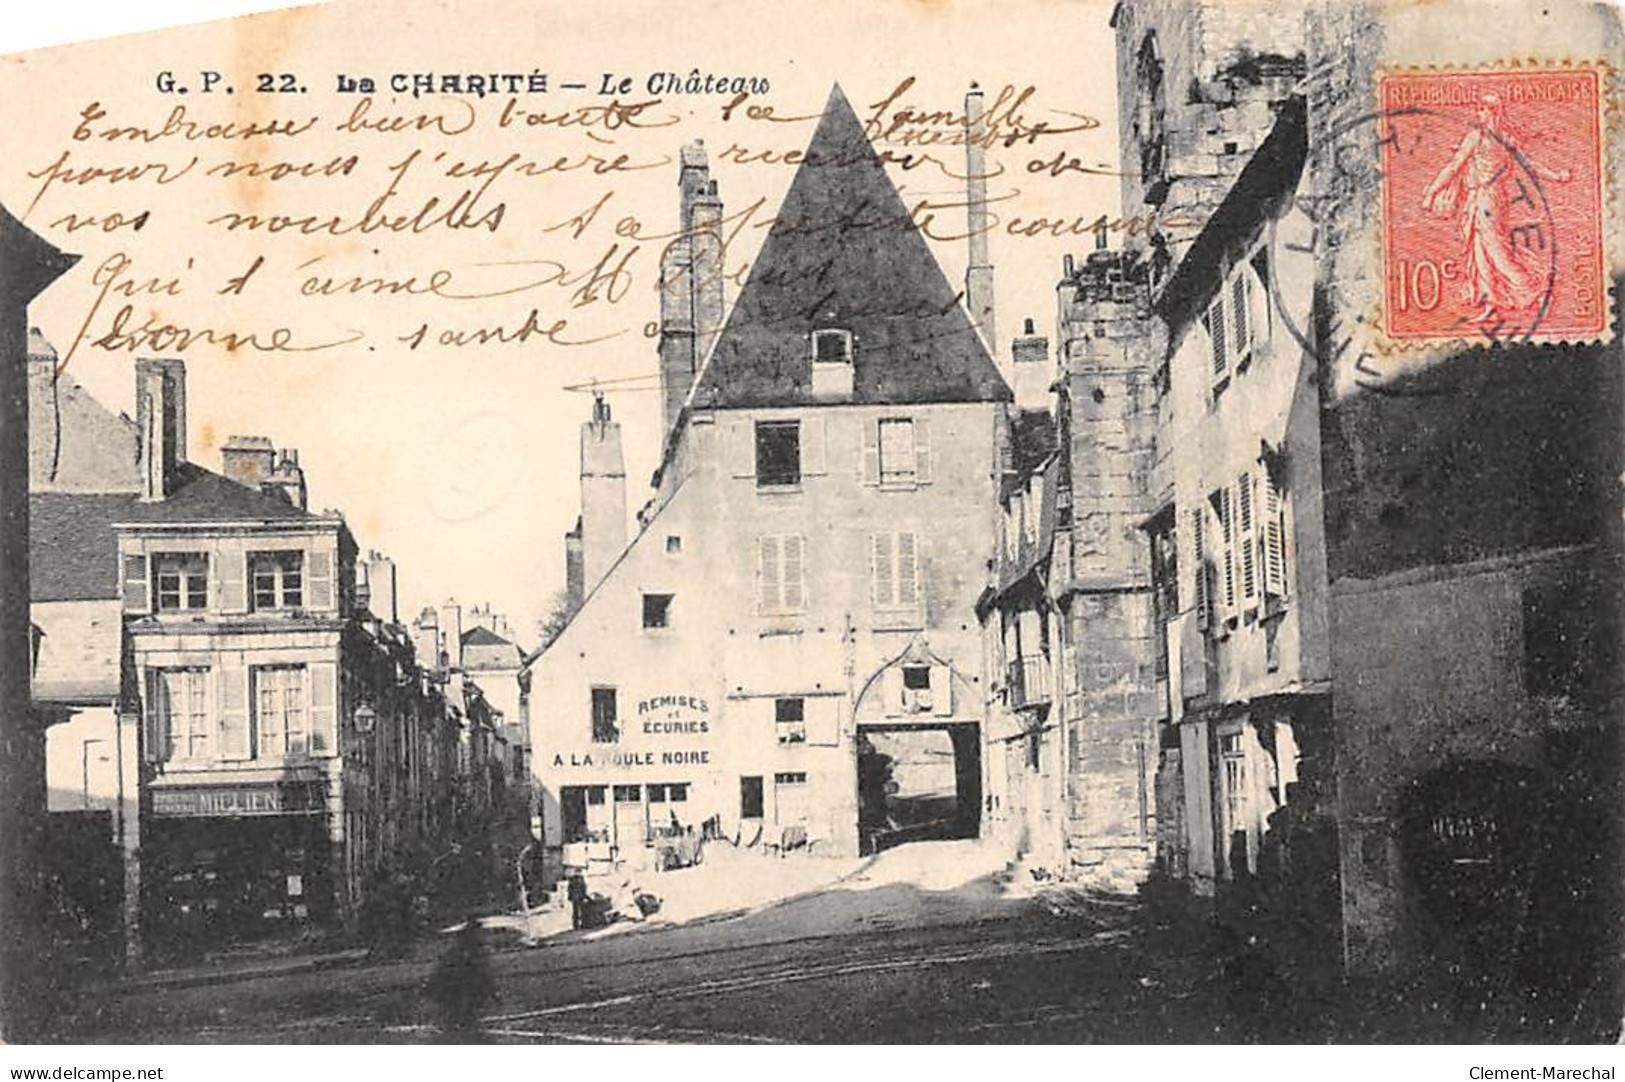 G. P. 22. La CHARITÉ — Le Château
Embrasse bien toute la famille
pour nous j'espère recevoir de
vos nouvelles ta petite cousine
Qui t'aime
bonne santé
REPUBLIQUE FRANÇAISE
10c
POSTES
LA CHARITE
REMISES
et
ECURIES
A LA POULE NOIRE
delcampe.net
Clement-Marechal